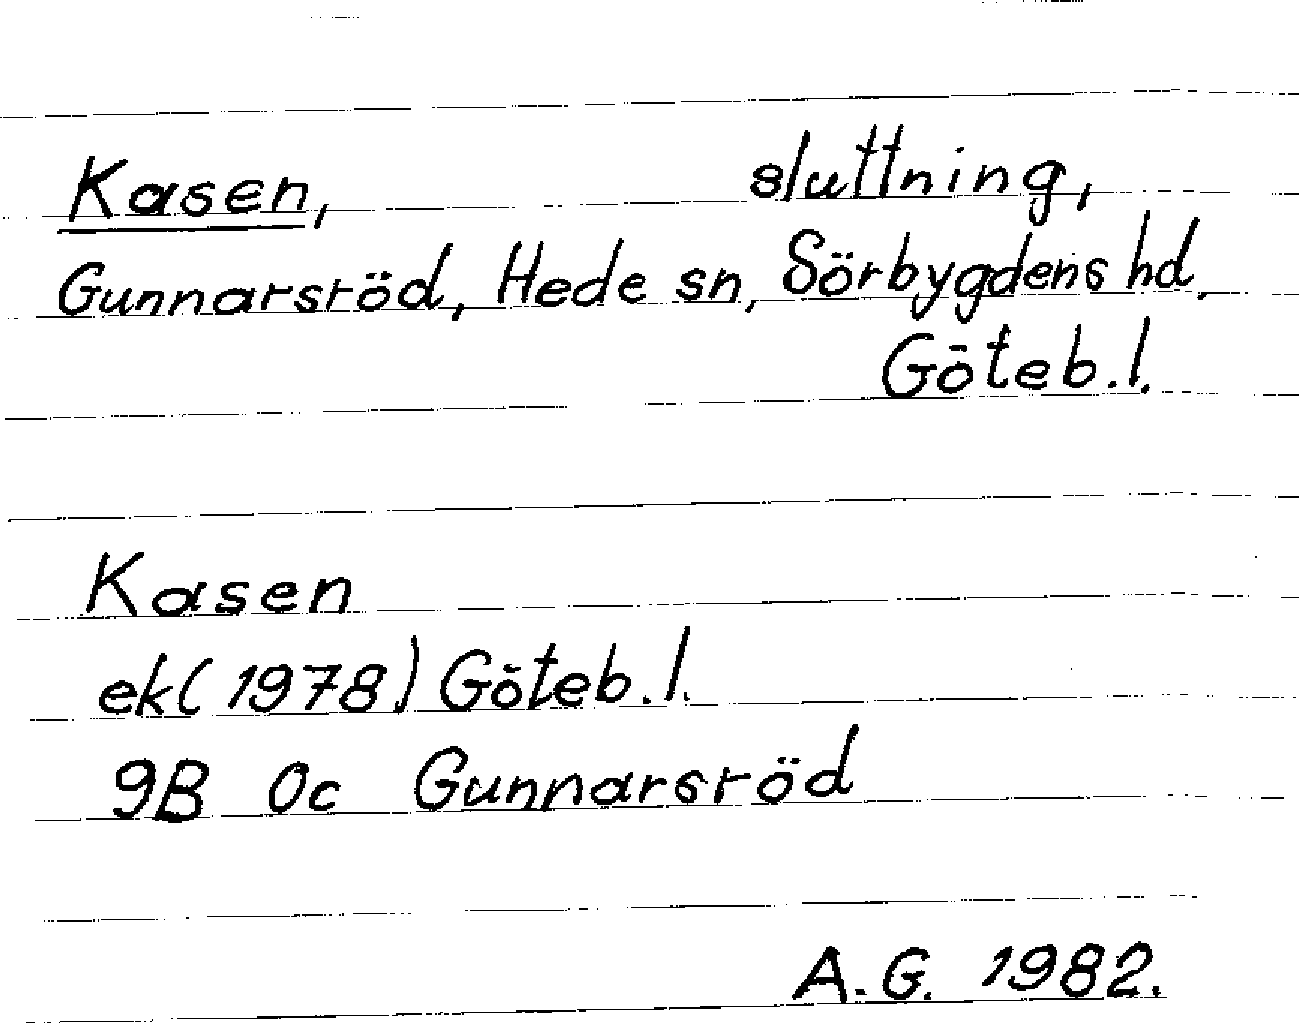 Kasen, sluttning,
Gunnarsröd, Hede sn, Sörbygdens hd.
Göteb.l.
Kasen
ek(1978) Göteb.l.
9B 0c Gunnarsröd
A.G. 1982.